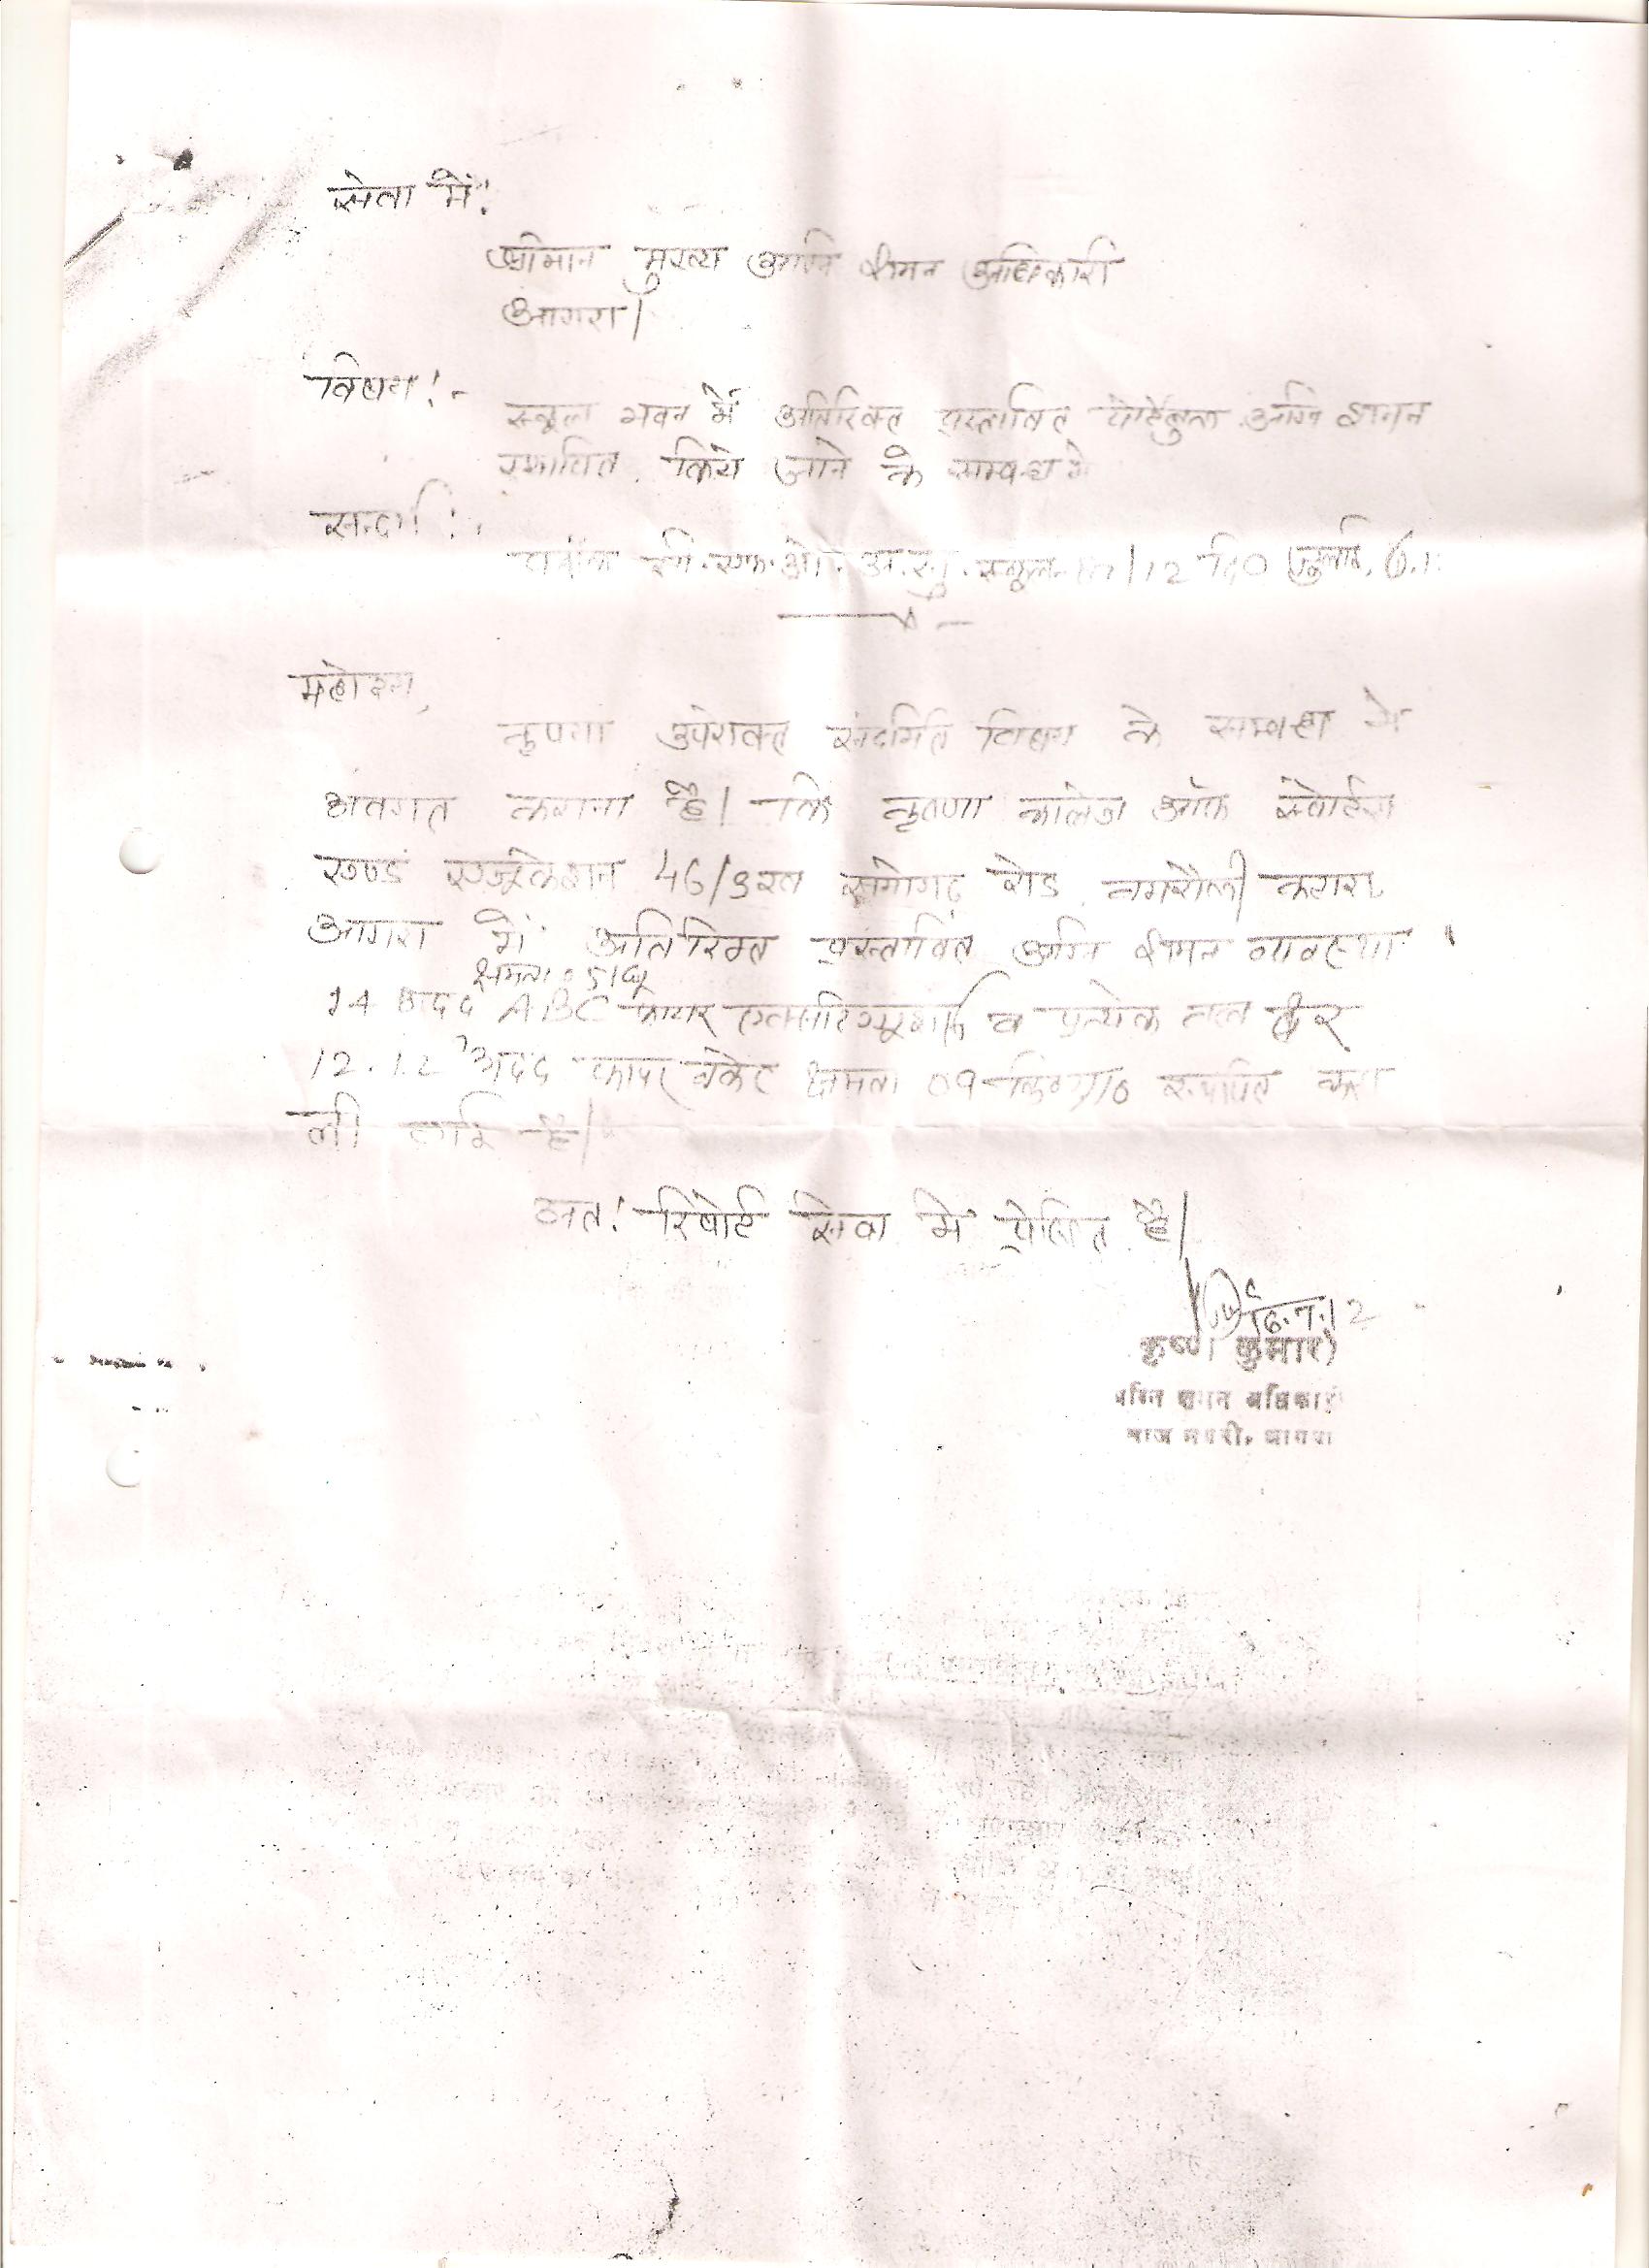 सेवा में!
श्रीमान मुख्य अग्नि शमन अधिकारी
आगरा।
विषय!-
स्कूल भवन में अतिरिक्त प्रस्तावित पोर्टेबुल अग्नि शमन
स्थापित किये जाने के सम्बन्ध में
सन्दर्भ:-
पत्रांक सी.एफ.ओ. स्कूल /12 दि0 जुलाई,
महोदय,
कृपया उपरोक्त संदर्भित विषय के सम्बन्ध में
अवगत कराना है। कि कृष्णा कालेज ऑफ स्पोर्टस
एण्ड एजूकेशन 46/3 रोड कटारा
आगरा में अतिरिक्त प्रस्तावित अग्नि शमन व्यवस्था
क्षमता 5kg
14 अदद ABC फायर व प्रत्येक तल पर
अदद फायर क्षमता 09 स्थापित करा
ली गयी है।
अत! रिपोर्ट सेवा में प्रेषित है।
16.7.12
कृष्ण कुमार)
अग्नि शमन अधिकारी
ताज नगरी, आगरा